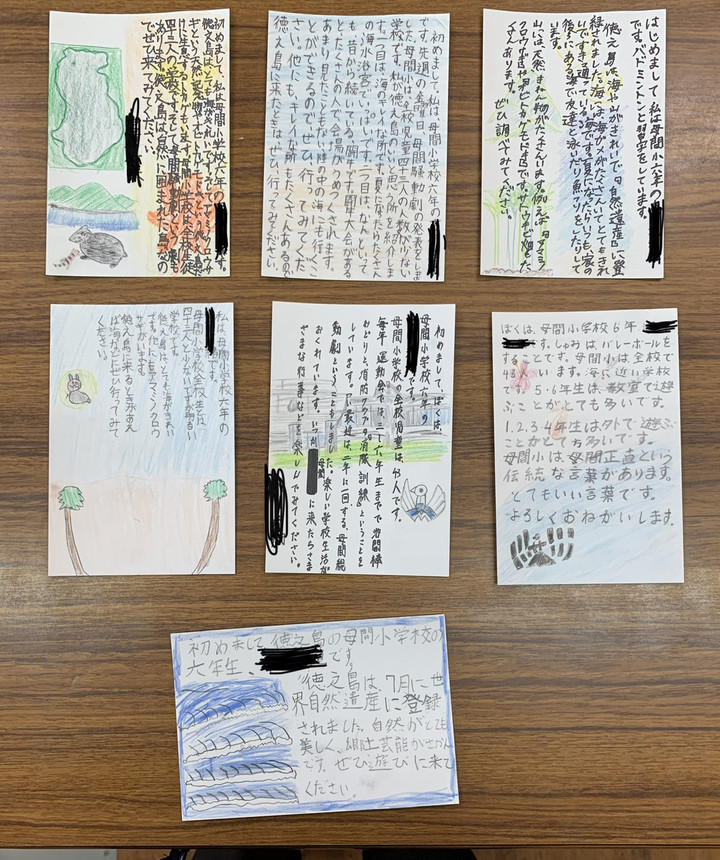 初めまして、私は母間小学校六年の
です。
徳之島は
四十三人の学校です。そして母間
あります。徳之島は自然に囲まれた島なの
でぜひ来てみてください。
初めまして、私は母間小学校六年の
です。先週の金曜日、母間騒動劇の発表をしま
した。母間小は、全校児童四十三人の人数が少ない
学校です。私が徳之島で良いと思う所を紹介しま
す。一つ目は、海のキレイな所です。夏になったらたくさん
の海水浴客でいっぱいです。二つ目は、なんといって
も昔から続いている闘牛です。闘牛大会がある
とたくさんの人で会場がうめつくされます。
あまり見たこともない
とができるのでぜひ、行ってみてくだ
さい。他にも、キレイな所もたくさんあるので
徳之島に来たときはぜひ、行ってみてください。
はじめまして、私は母間小六年の
です。バドミントンと習字をしています。
徳之島は、海や山がきれいで、自然遺産に登
録されました。海には、海ガメがたくさんいてとてもきれ
いですき通っている
後にある海で友達と泳いだり魚つりをしたりして
います。
山には、天然きねん物がたくさんいます。例えば、アマミノ
クロウサギやオビトカゲモドキです。サトウキビ畑もた
くさんあります。ぜひ調べてみてください。
私は、母間小学校六年の
です。
母間小学校の全校生徒は
四十三人と少ないですが明るい
学校です。
徳之島は、とても海がきれい
です。他にもアマミノクロウ
サギがいます。
徳之島に来るときがあれ
ば海などにぜひ行ってみて
ください。
初めまして、ぼくは、
母間小学校六年の
です。
母間小学校の全校児童は、43人です。
毎年、運動会では、三〜六年生までで母間棒
おどりと、消防クラブの『消防訓練』ということを
しています。『最近は、二年に一回する、母間騒
動劇ということもしました。楽しい学校生活が
おくれています。いつか、母間に来たらさま
ざまな行事などを楽しんでみてください。
ぼくは、母間小学校6年
です。しゅみは、バレーボールを
することです。母間小は全校で
43人います。海に近い学校
です。5.6年生は、教室で遊
ぶことがとても多いです。
1.2.3.4年生は外で遊ぶ
ことがとても多いです。
母間小は、母間正直という
伝統な言葉があります。
とてもいい言葉です。
よろしくおねがいします。
初めまして、徳之島の母間小学校の
六年生、
です。
徳之島は、7月に世
界自然遺産に登録
されました。自然がとても
美しく、郷土芸能がさかん
です。ぜひ遊びに来て
ください。